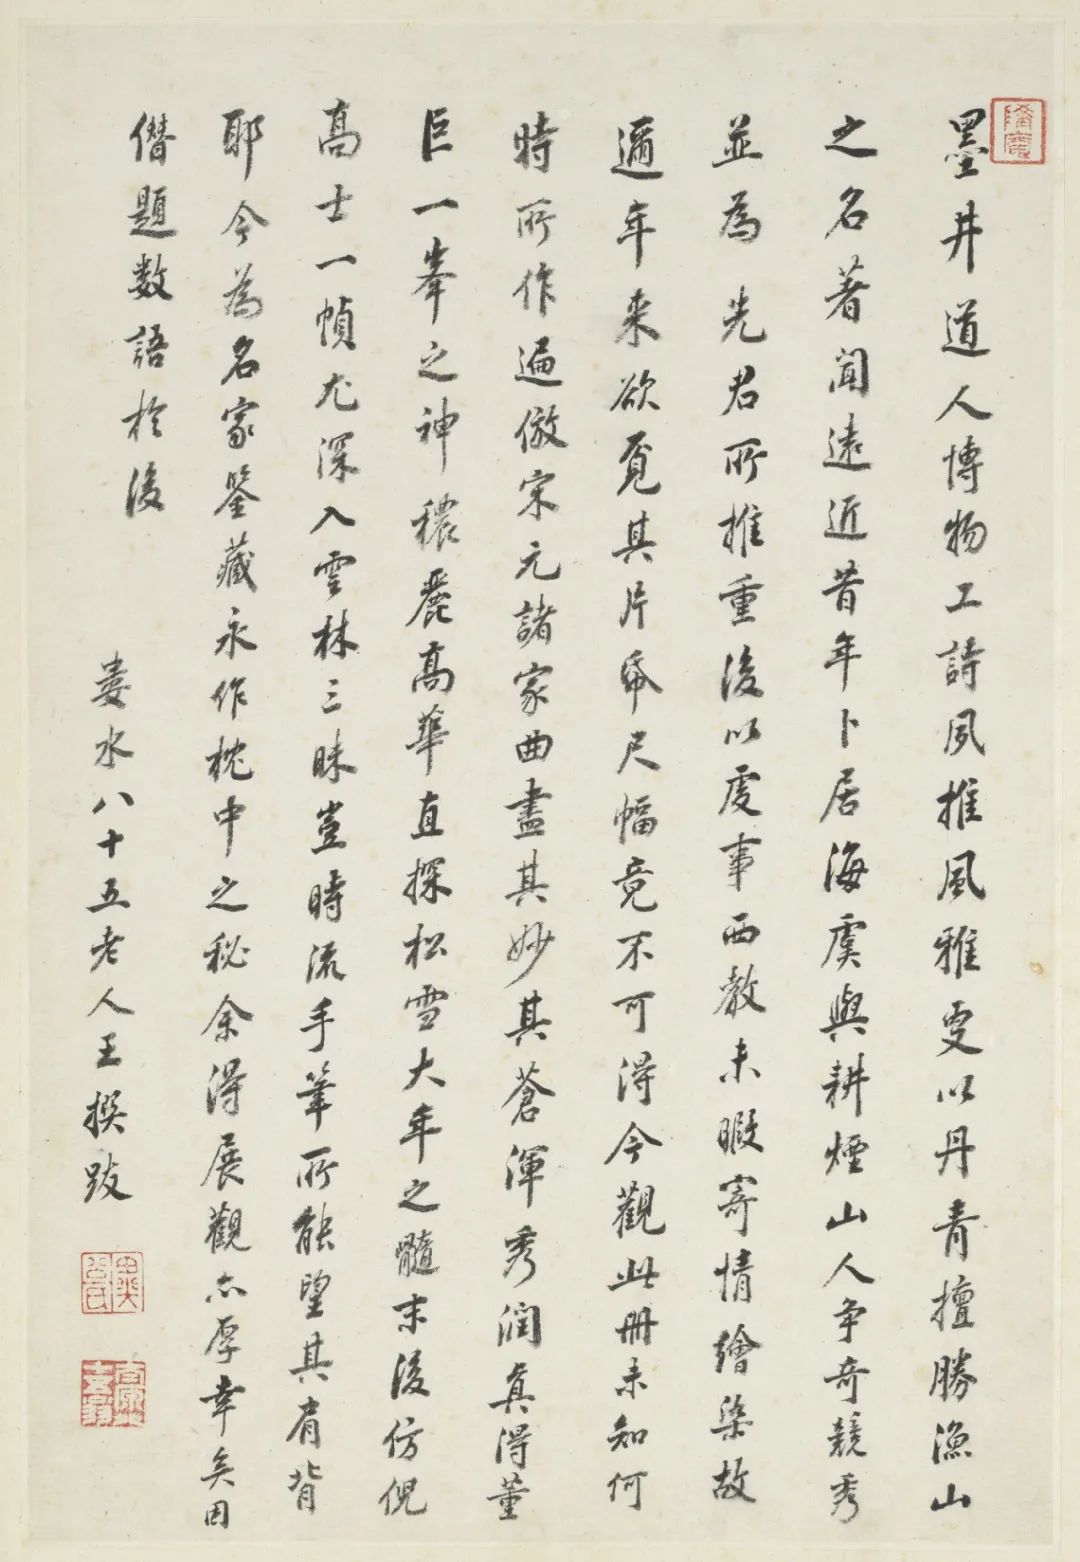 墨井道人博物工詩夙推風雅更以丹青擅勝漁山
之名著聞遠近昔年卜居海虞與耕煙山人爭奇競秀
並為先君所推重後以虔事西教未暇寄情繪染故
邇年來欲覓其片帋尺幅竟不可得今觀此冊未知何
時所作遍倣宋元諸家曲盡其妙其蒼渾秀潤真得董
巨一峯之神穠麗高華直探松雪大年之髓末後仿倪
高士一幀尤深入雲林三昧豈時流手筆所能望其肩背
耶今為名家鑒藏永作枕中之秘余得展觀亦厚幸矣因
僭題數語於後
婁水八十五老人王撰跋